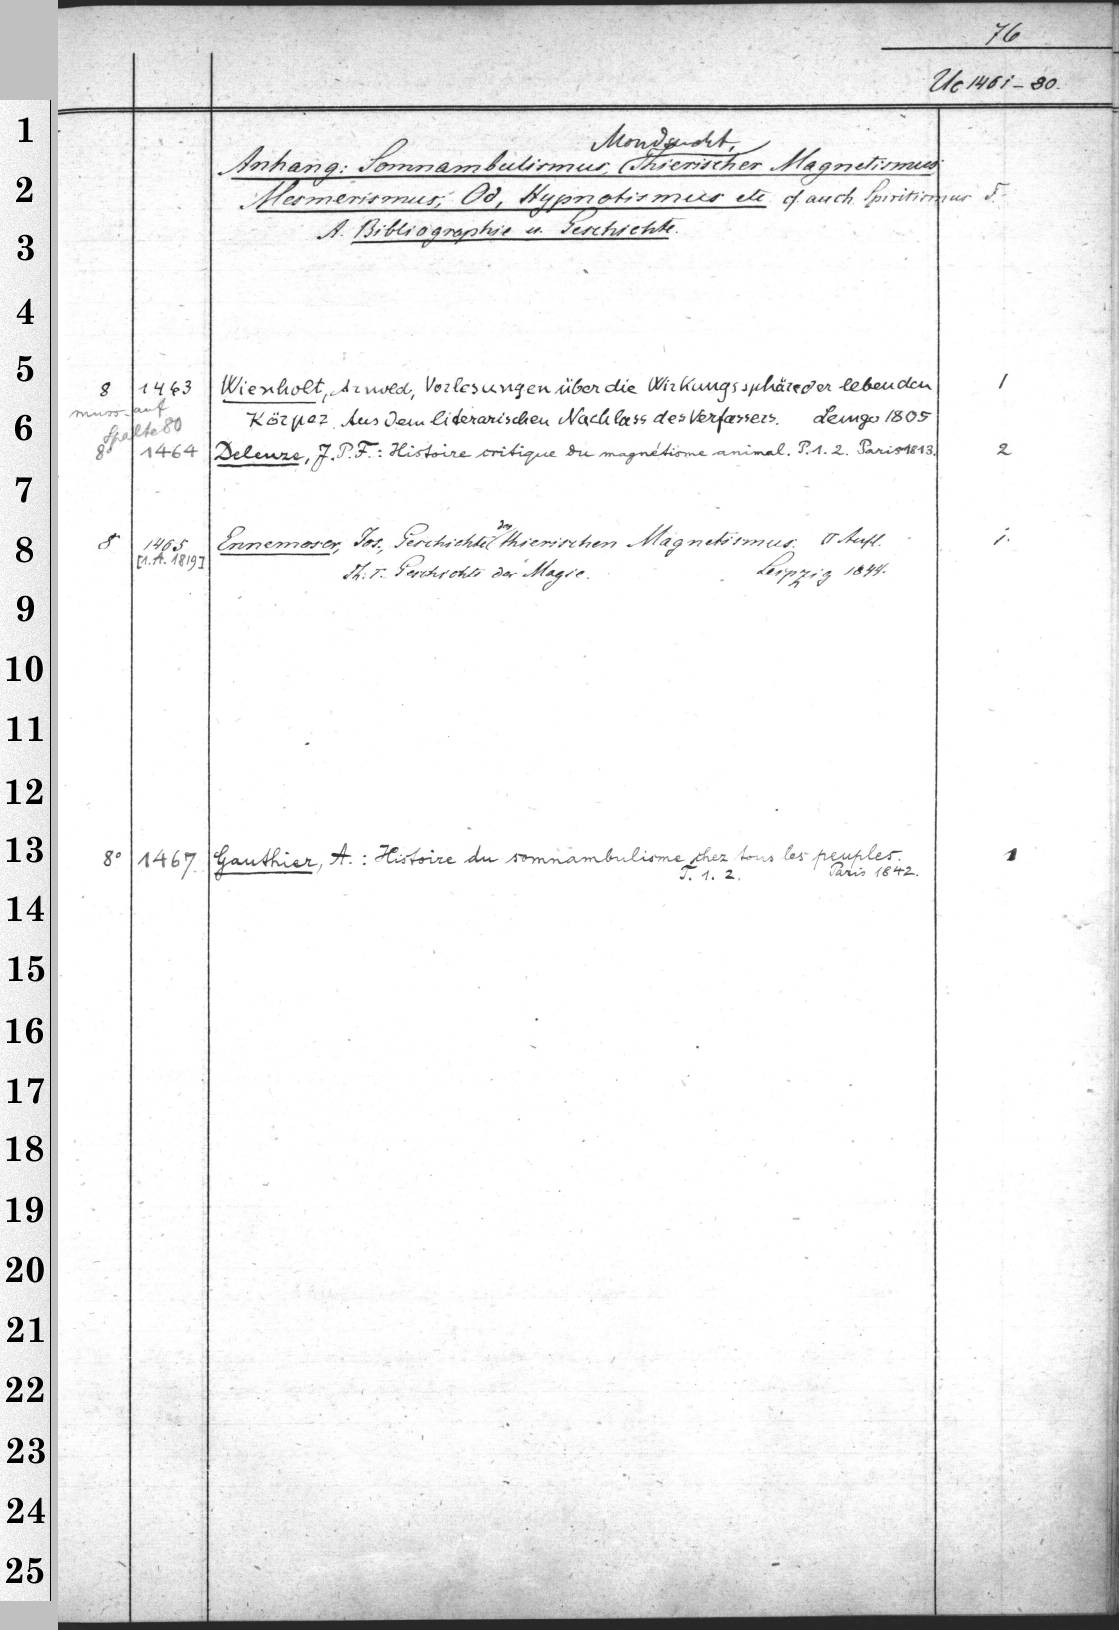 76
Uc 1461-80.
Mondsucht,
Anhang: Somnambulismus, Thierischer Magnetismus,
Mesmerismus, Od, Hypnotismus etc cf auch Spiritismus
A. Bibliographie u. Geschichte.
8 1463 Wienholt, Arnold, Vorlesungen über die Wirkungssphäre der lebenden 1
muss auf
Körper. Aus dem literarischen Nachlass des Verfassers. Lemgo 1805
Spalte 80
8° 1464 Deleuze, J.P.F.: Histoire critique du magnétisme animal. P. 1. 2. Paris 1813. 2
8° 1465 Ennemoser, Jos., Geschichte des thierischen Magnetismus. Aufl. 1.
[1. A. 1819] Th. I. Geschichte der Magie. Leipzig 1844.
8° 1467. Gauthier, A.: Histoire du somnambulisme chez tous les peuples. 1
T. 1. 2. Paris 1842.
1
2
3
4
5
6
7
8
9
10
11
12
13
14
15
16
17
18
19
20
21
22
23
24
25